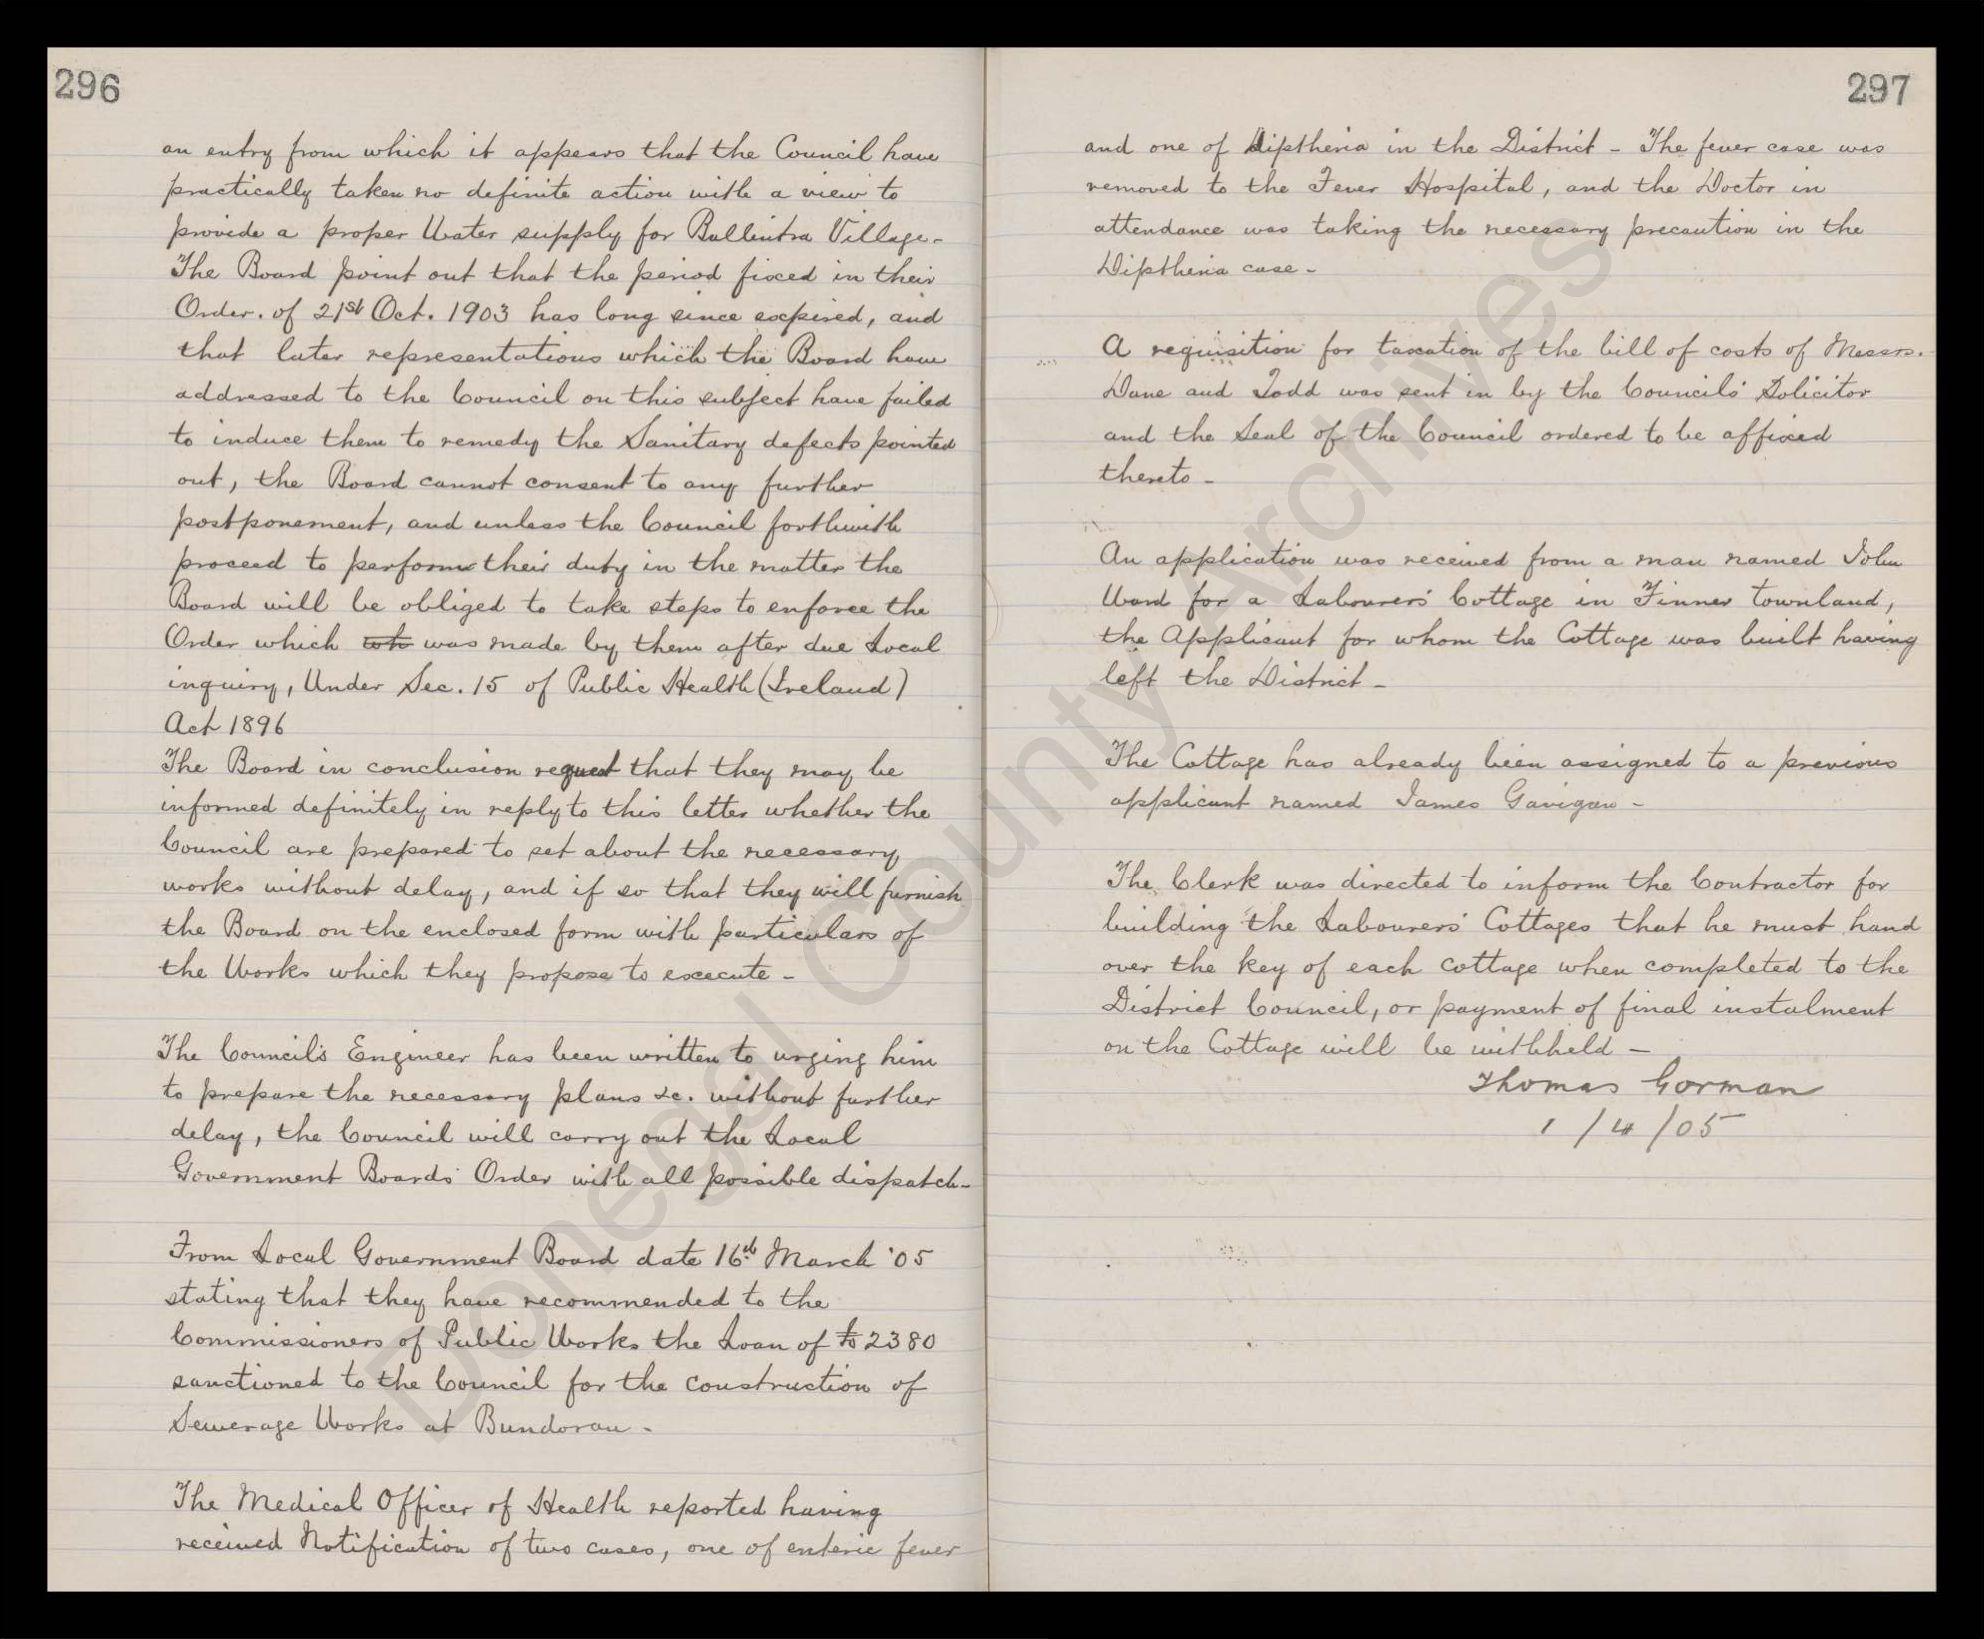 296
an entry from which it appears that the Council have
practically taken no definite action with a view to
provide a proper Water supply for Ballintra Village-
The Board point out that the period fixed in their
Order. of 21st Oct. 1903 has long since expired, and
that later representations which the Board have
addressed to the Council on this subject have failed
to induce them to remedy the Sanitary defects pointed
out, the Board cannot consent to any further
postponement, and unless the Council forthwith
proceed to perform their duty in the matter the
Board will be obliged to take steps to enforce the
Order which wh was made by them after due Local
inquiry, Under Sec. 15 of Public Health (Ireland)
Act 1896
The Board in conclusion request that they may be
informed definitely in reply to this letter whether the
Council are prepared to set about the necessary
works without delay, and if so that they will furnish
the Board on the enclosed form with particulars of
the Works which they propose to execute -
The Council's Engineer has been written to urging him
to prepare the necessary plans &c. without further
delay, the Council will carry out the Local
Government Boards' Order with all possible dispatch-
From Local Government Board date 16th March '05
stating that they have recommended to the
Commissioners of Public Works the Loan of £2380
sanctioned to the Council for the construction of
Sewerage Works at Bundoran -
The Medical Officer of Health reported having
received Notification of two cases, one of enteric fever
297
and one of Diptheria in the District - The fever case was
removed to the Fever Hospital, and the Doctor in
attendance was taking the necessary precaution in the
Diptheria case -
A requisition for taxation of the bill of costs of Messrs.
Dane and Todd was sent in by the Councils' Solicitor
and the Seal of the Council ordered to be affixed
thereto -
An application was received from a man named John
Ward for a Labourers' Cottage in Finner townland,
the Applicant for whom the Cottage was built having
left the District -
The Cottage has already been assigned to a previous
applicant named James Gavigan -
The Clerk was directed to inform the Contractor for
building the Labourers' Cottages that he must hand
over the key of each cottage when completed to the
District Council, or payment of final instalment
on the Cottage will be withheld -
Thomas Gorman
1/4/05
Donegal County Archives